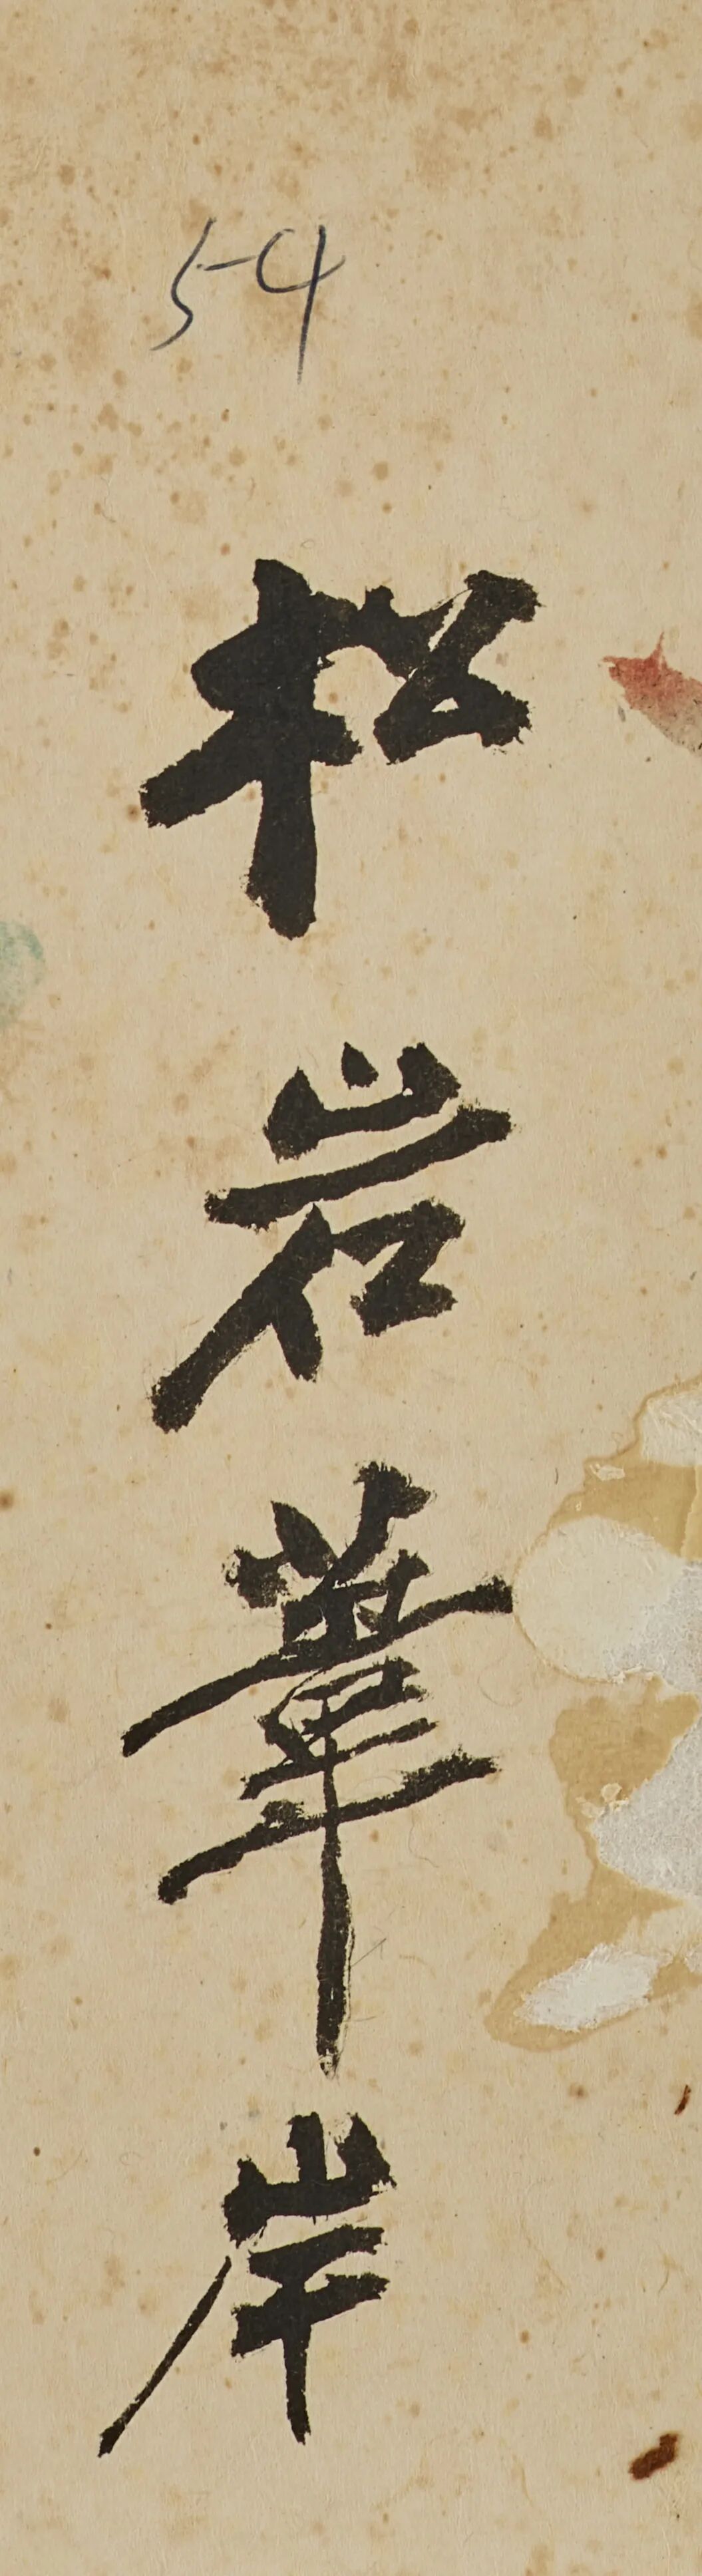 54
松岩葦岸